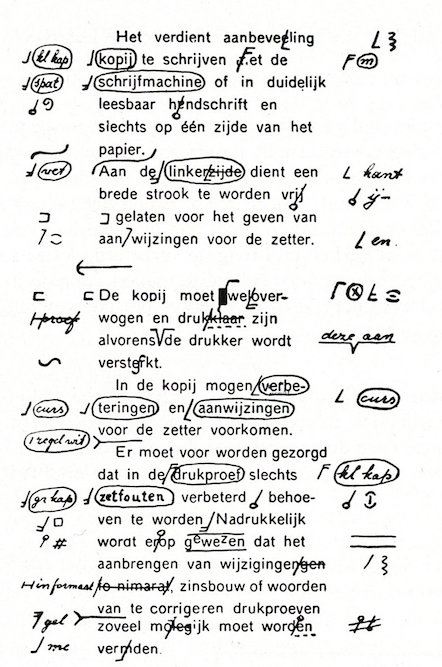 Het verdient aanbeveling
kl kap kopij te schrijven Fet de F m
spat schrijfmachine of in duidelijk
leesbaar hendschrift en
slechts op één zijde van het
papier.
vet Aan de linkerzijde dient een kant
brede strook te worden vrij ij
gelaten voor het geven van
aan wijzingen voor de zetter. en.
De kopij moet welover-
proef wogen en drukklaar zijn
alvorens de drukker wordt deze aan
versterkt.
In de kopij mogen verbe- curs
curs teringen en aanwijzingen
voor de zetter voorkomen.
1 regel wit
Er moet voor worden gezorgd
dat in de drukproef slechts F kl kap
gr kap zetfouten verbeterd behoe-
ven te worden Nadrukkelijk
# wordt erop gewezen dat het
aanbrengen van wijzigingengen
informast to nimarat, zinsbouw of woorden
van te corrigeren drukproeven
gel zoveel molegijk moet worden
me vermiden.